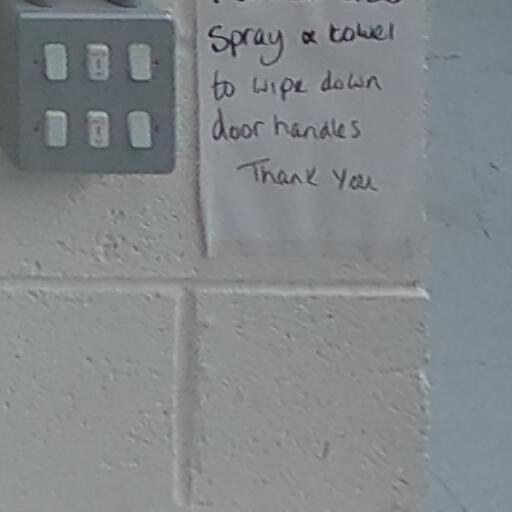 Spray & towel
to wipe down
door handles
Thank You